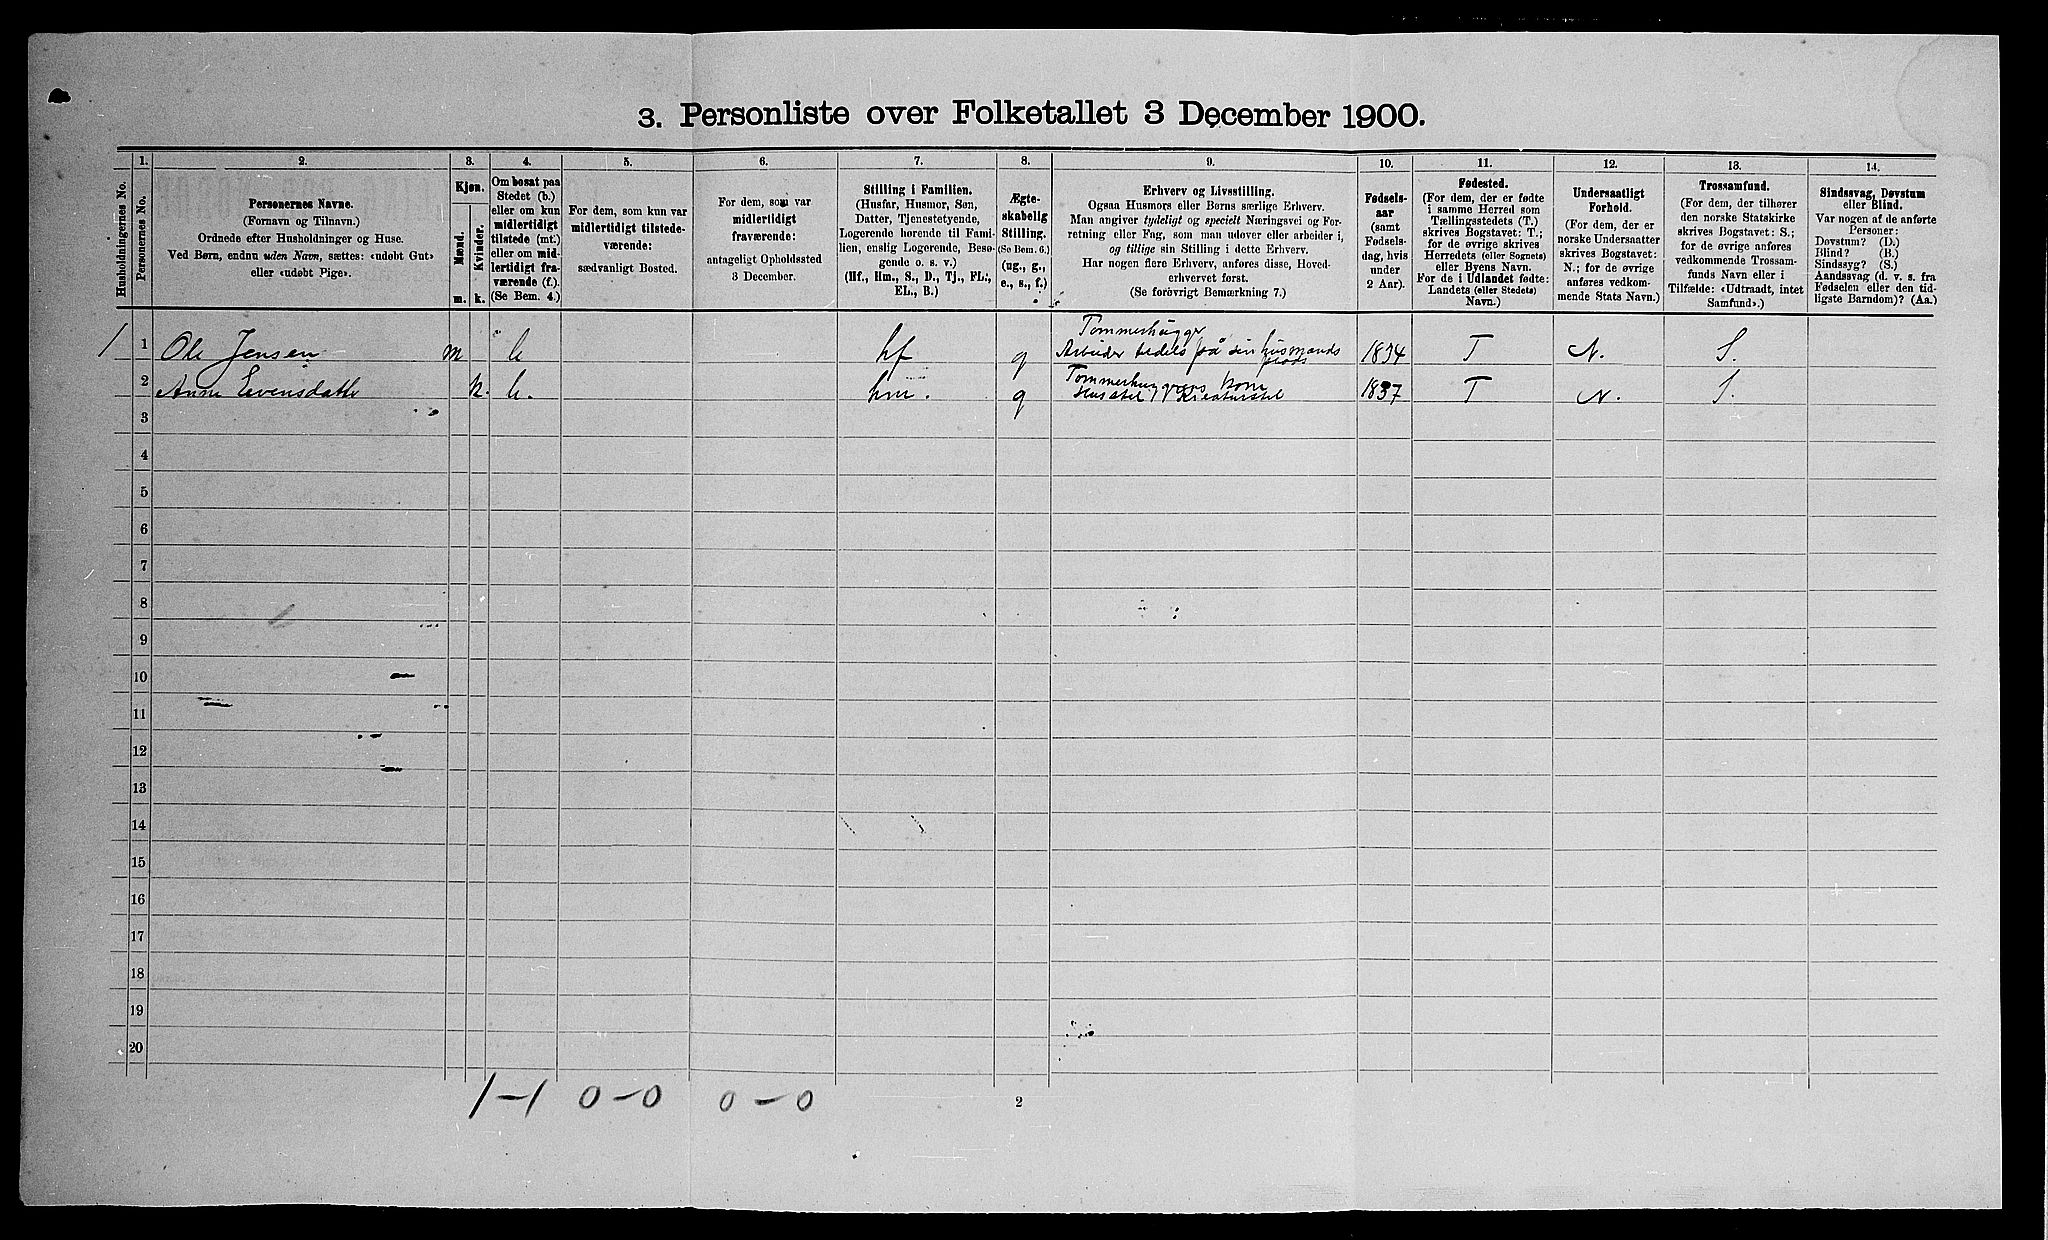 3. Personliste over Folketallet 3 December 1900.
1. 2. 3. 4. 5. 6. 7. 8. 9. 10. 11. 12. 13. 14.
Husholdningernes No.
Personernes No.
Personernes Navne.
(Fornavn og Tilnavn.)
Ordnede efter Husholdninger og Huse.
Ved Børn, endnu uden Navn, sættes: «udøbt Gut»
eller «udøbt Pige».
Kjøn.
Mænd.
Kvinder.
m. k.
Om bosat paa
Stedet (b.)
eller om kun
midlertidigt
tilstede (mt.)
eller om mid-
lertidigt fra-
værende (f.)
(Se Bem. 4.)
For dem, som kun var
midlertidigt tilstede-
værende:
sædvanligt Bosted.
For dem, som var
midlertidigt
fraværende:
antageligt Opholdssted
3 December.
Stilling i Familien.
(Husfar, Husmor, Søn,
Datter, Tjenestetyende,
Logerende hørende til Fami-
lien, enslig Logerende, Besø-
gende o. s. v.)
(Hf., Hm., S., D., Tj., FL.,
EL., B.)
Ægte-
skabelig
Stilling.
(Se Bem. 6.)
(ug., g.,
e., s., f.)
Erhverv og Livsstilling.
Ogsaa Husmors eller Børns særlige Erhverv.
Man angiver tydeligt og specielt Næringsvei og For-
retning eller Fag, som man udøver eller arbeider i,
og tillige sin Stilling i dette Erhverv.
Har nogen flere Erhverv, anføres disse, Hoved-
erhvervet først.
(Se forøvrigt Bemærkning 7.)
Fødsels-
aar
(samt
Fødsels-
dag, hvis
under
2 Aar).
Fødested.
(For dem, der er fødte
i samme Herred som
Tællingsstedets (T.)
skrives Bogstavet: T.;
for de øvrige skrives
Herredets (eller Sognets)
eller Byens Navn.
For de i Udlandet fødte:
Landets (eller Stedets)
Navn.)
Undersaatligt
Forhold.
(For dem, der er
norske Undersaatter
skrives Bogstavet:
N.; for de øvrige
anføres vedkom-
mende Stats Navn.)
Trossamfund.
(For dem, der tilhører
den norske Statskirke
skrives Bogstavet: S.;
for de øvrige anføres
vedkommende Trossam-
funds Navn eller i
Tilfælde: «Udtraadt, intet
Samfund».)
Sindssvag, Døvstum
eller Blind.
Var nogen af de anførte
Personer:
Døvstum? (D.)
Blind? (B.)
Sindssyg? (S.)
Aandssvag (d. v. s. fra
Fødselen eller den tid-
ligste Barndom)? (Aa.)
1 1 Ole Jensen m b hf g Tømmerhugger Arbeider tedels på sin husmands plads 1834 T N. S.
2 Anne Evensdatter k. b. hm. g Tømmerhuggers kone Husstel Kreaturstel 1837 T N. S.
3
4
5
6
7
8
9
10
11
12
13
14
15
16
17
18
19
20
1–1 0–0 0–0
2